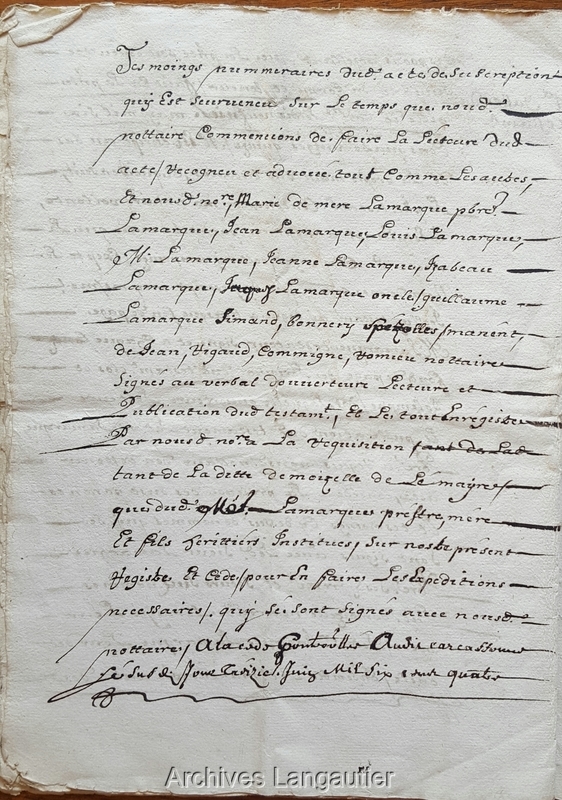 Tesmoings nummeraires dud. acte de suscription
quy Est seurveneu sur Le temps que noud.
nottaire Commencions de faire La Lecteure dud
acte/ recogneu et advoué tout Comme Les autres,
Et nousd. nore, Marie de mere Lamarque pbre
Lamarque, Jean Lamarque, Louis Lamarque,
M. Lamarque, Jeanne Lamarque, Izabeau
Lamarque, Lamarque oncle/ guillaume
Lamarque Simand, bonnery manent,
de Jean, Rigaud, Commigne, Romieu nottaire
Signés au verbal d'ouverteure Lecteure et
Publication dud testamt, Et Le tout Enregistre
Par nousd nore a La requisition tant de Lad
tant de La ditte demoizelle de Le mayre
que dud. Lamarque prestre, mere
Et fils herittiers Institues/ sur nostre présent
Registre Et Cede/ pour En faire Les Expeditions
necessaires/. quy se sont signés avec nousd.
nottaire/ Audit carcassonne
Le susd Jour Juin Mil Six cent quatre
Archives Langautier